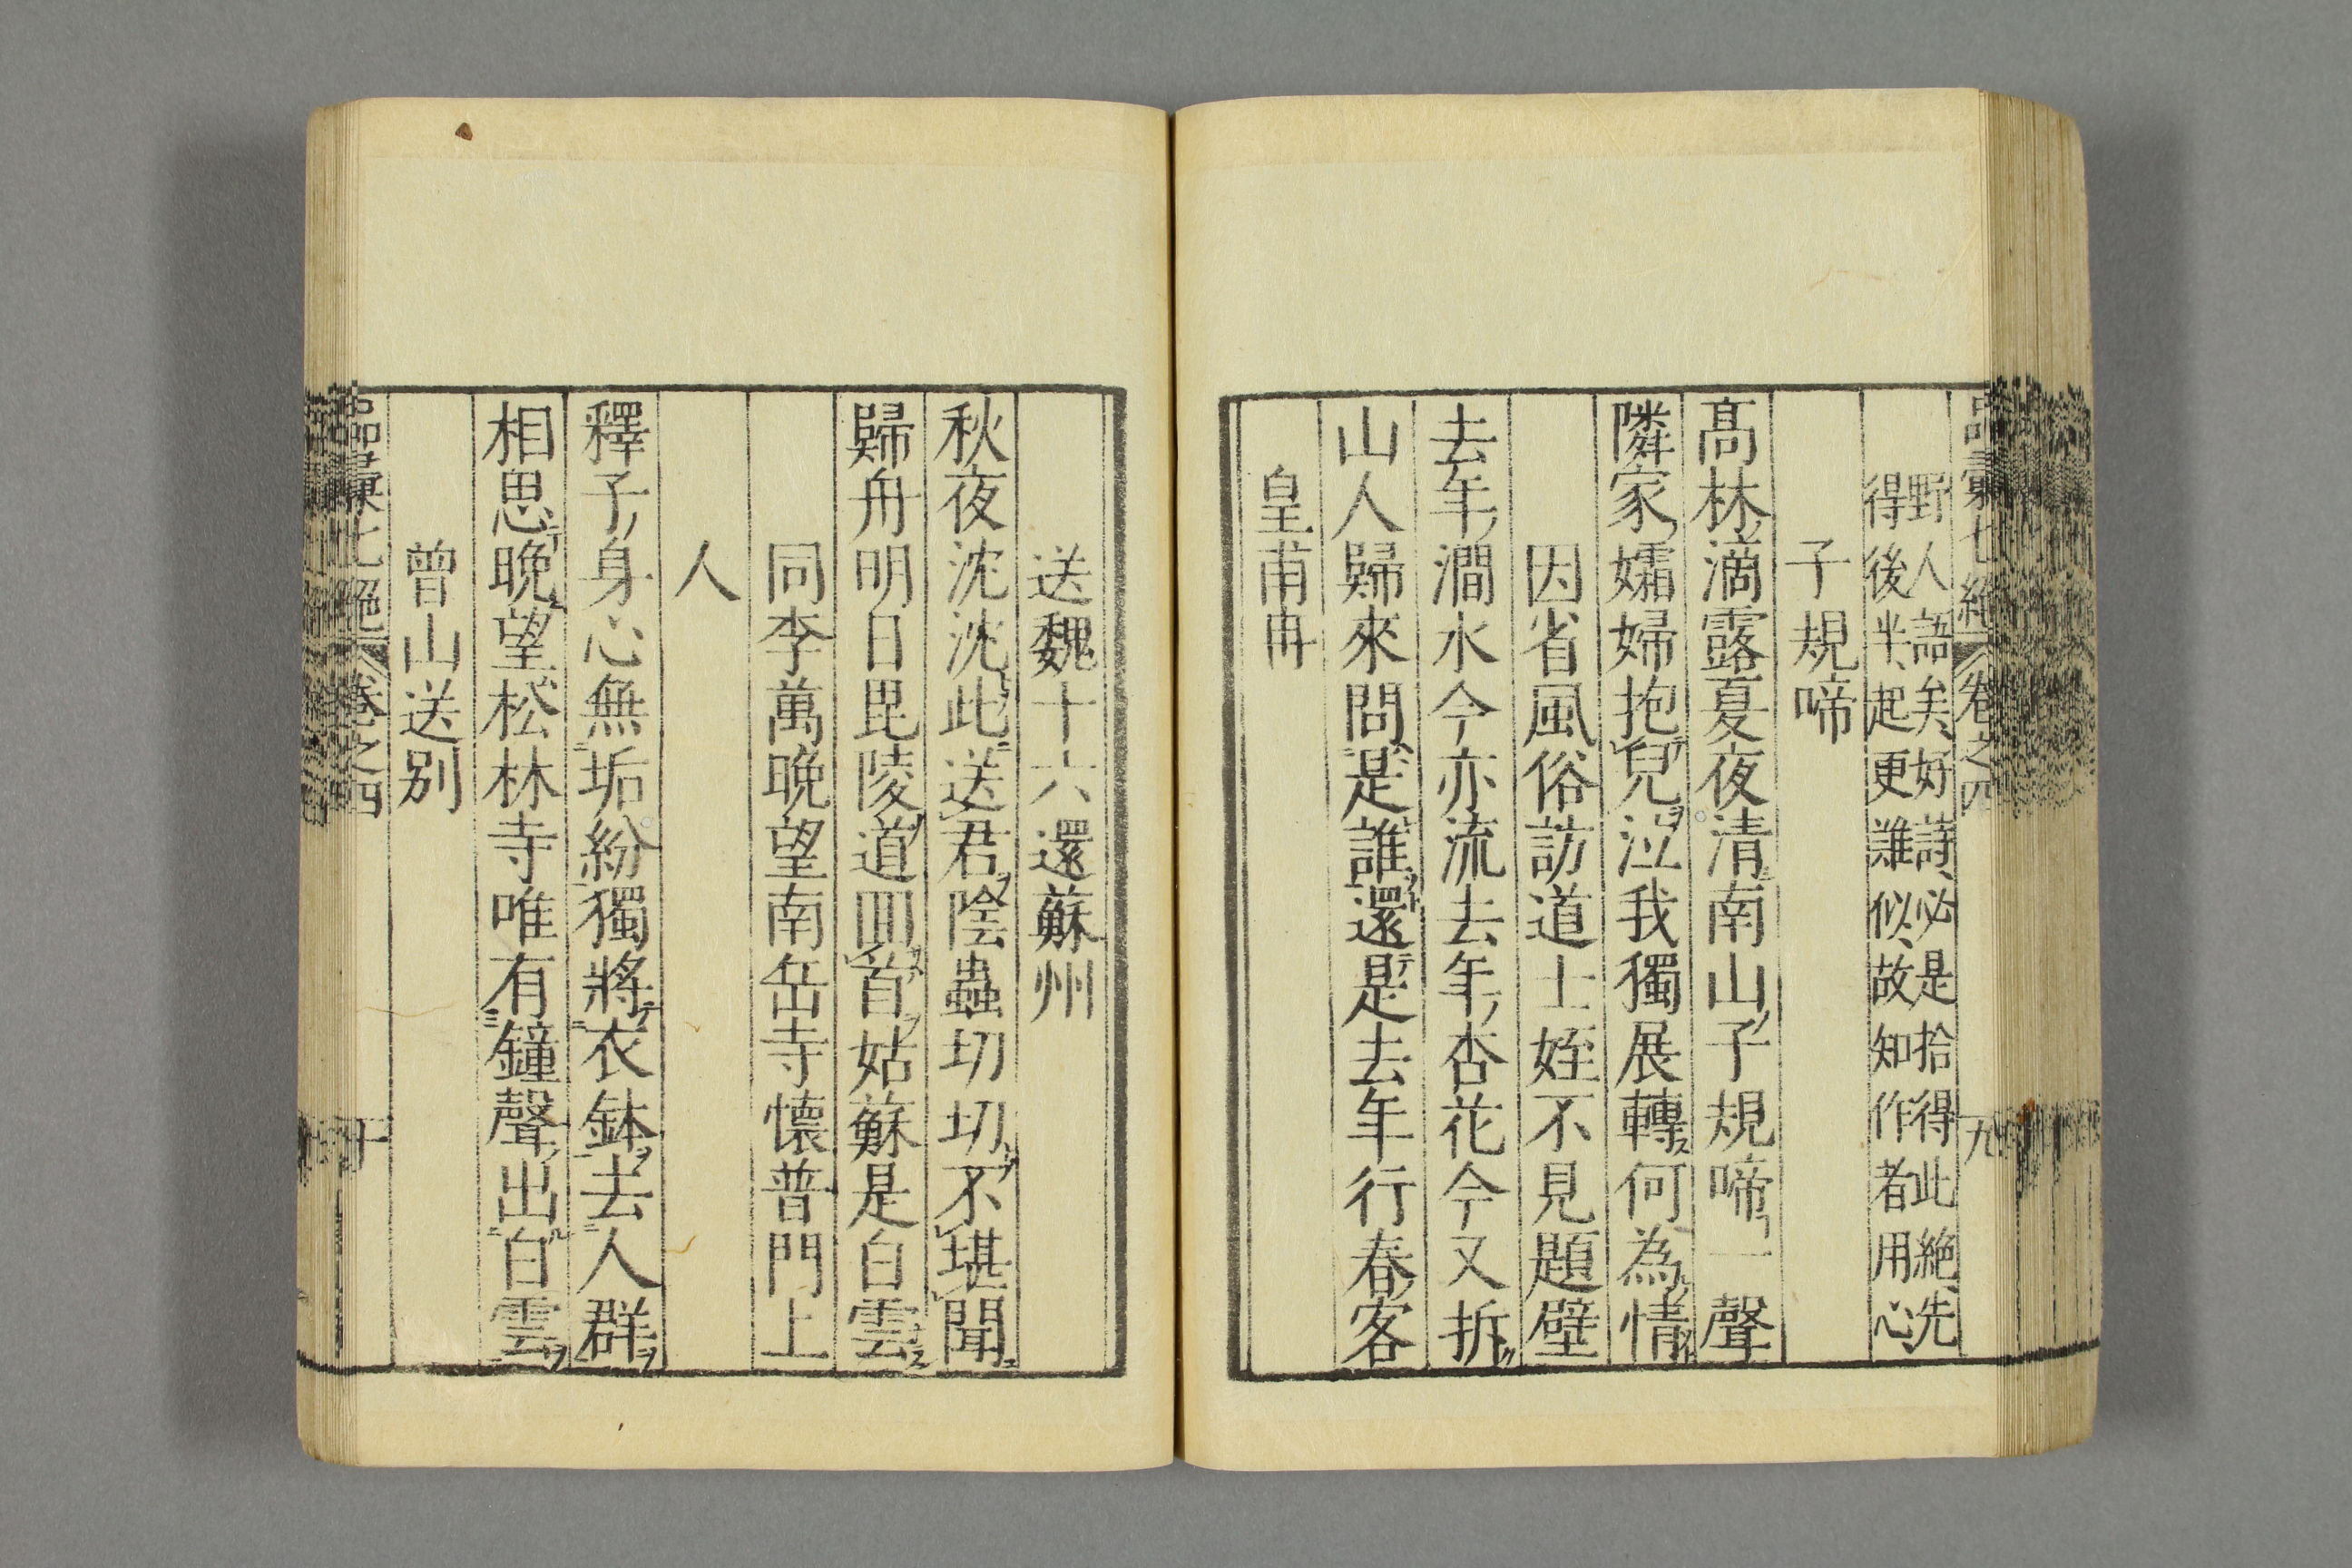 品彙七絶 卷之四 九
野人語矣、好詩、必是拾得此絶、先
得後半、起更難似、故知作者用心
子規啼
髙林滴露夏夜清南山子規啼一聲
隣家孀婦抱兒泣我獨展轉何為情
因省風俗訪道士姪不見題壁
去年澗水今亦流去年杏花今又拆
山人歸來問是誰還是去年行春客
皇甫冉
送魏十六還蘇州
秋夜沈沈此送君陰蟲切切不堪聞
歸舟明日毘陵道回首姑蘇是白雲
同李萬晚望南岳寺懷普門上
人
釋子身心無垢紛獨將衣鉢去人群
相思晚望松林寺唯有鐘聲出白雲
曾山送别
品彙七絶 卷之四 十